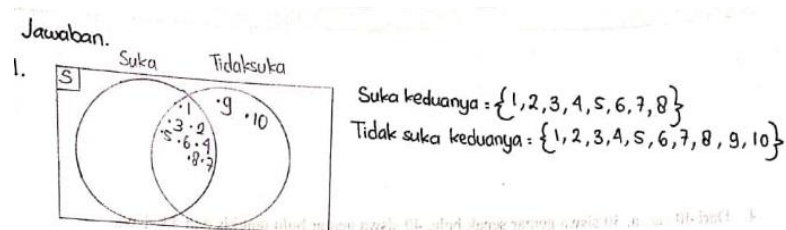 Jawaban.
1.
Suka Tidaksuka
S
.1 .9 .10
.3 .2
.5 .6 .4
.8 .7
Suka keduanya = {1,2,3,4,5,6,7,8}
Tidak suka keduanya = {1,2,3,4,5,6,7,8,9,10}